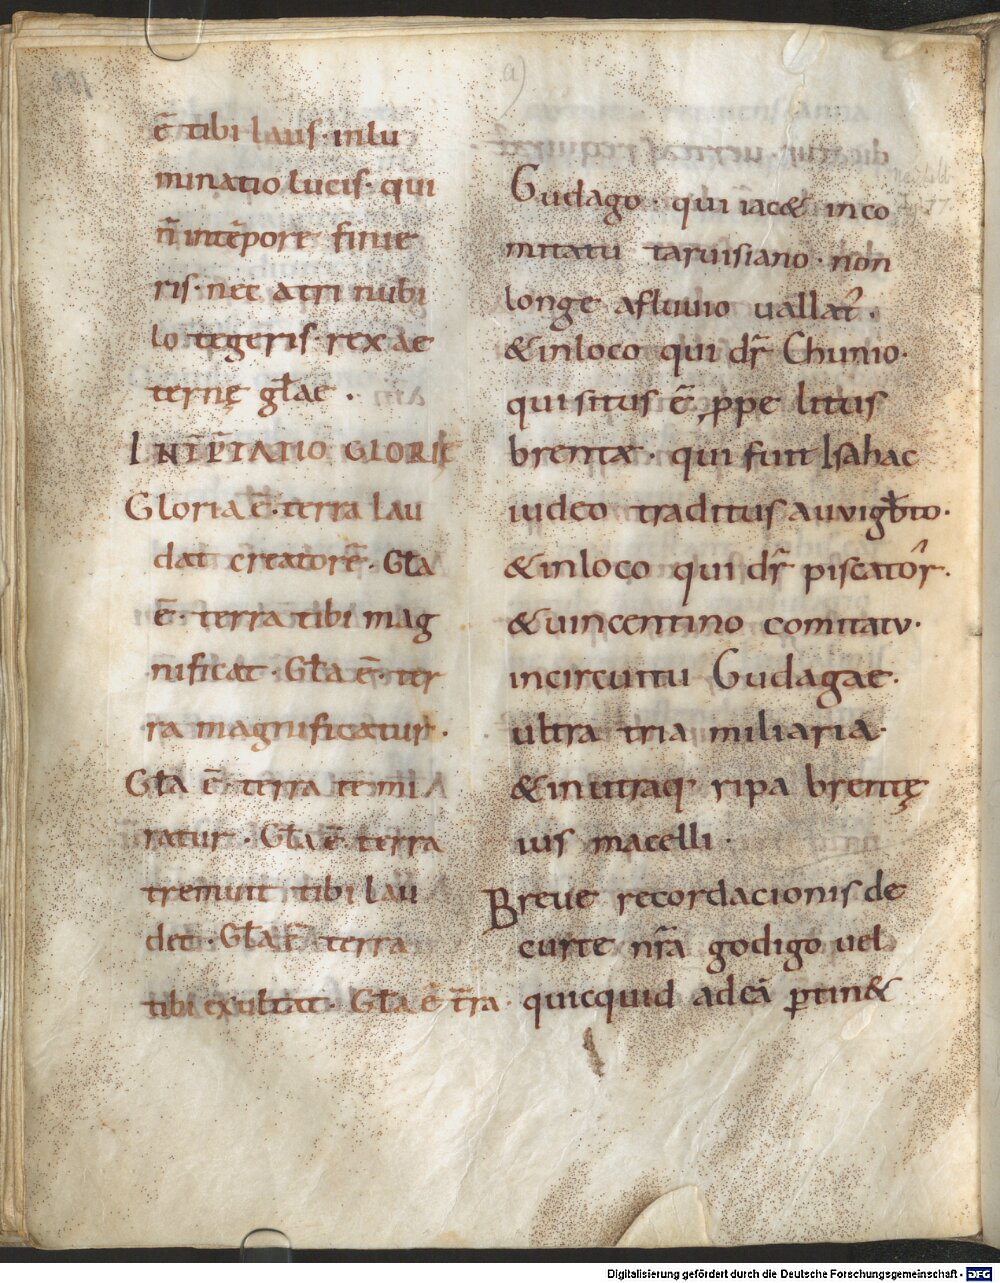 ē tibi laus· inlu
minatio lucis· qui
n̄ in tēpore finie
ris· nec atri nubi
lo tegeris· rex ae
ternę gl̄ae .
INT̄P̄TATIO GLORIĘ
Gloria ē· terra lau
dat creatorē· Gl̄a
ē· terra tibi mag
nificat· Gl̄a ē· ter
ra magnificatur·
Gl̄a ē terra te mi
ratur· Gl̄a ē· terra
tremunt tibi lau
det· Gl̄a ē terra
tibi exultat· Gl̄a ē t̄ra·
a)
Gudago· qui iac& in co
mitatu taruisiano· non
longe a fluuio uallat̄·
& in loco qui dr̄ Chunio·
qui situs ē, ꝓpe litus
brentæ· qui fuit Isahac
iudeo traditus a uvigb̄to·
& in loco qui dr̄ piscator̂·
& uincentino comitatu·
in circuitu Gudagae·
ultra tria miliaria·
& in utraq ripa brentę
ius macelli·
Breue recordacionis de
curte nr̄a godigo uel
quicquid ad eā ꝑtin&
Digitalisierung gefördert durch die Deutsche Forschungsgemeinschaft - DFG